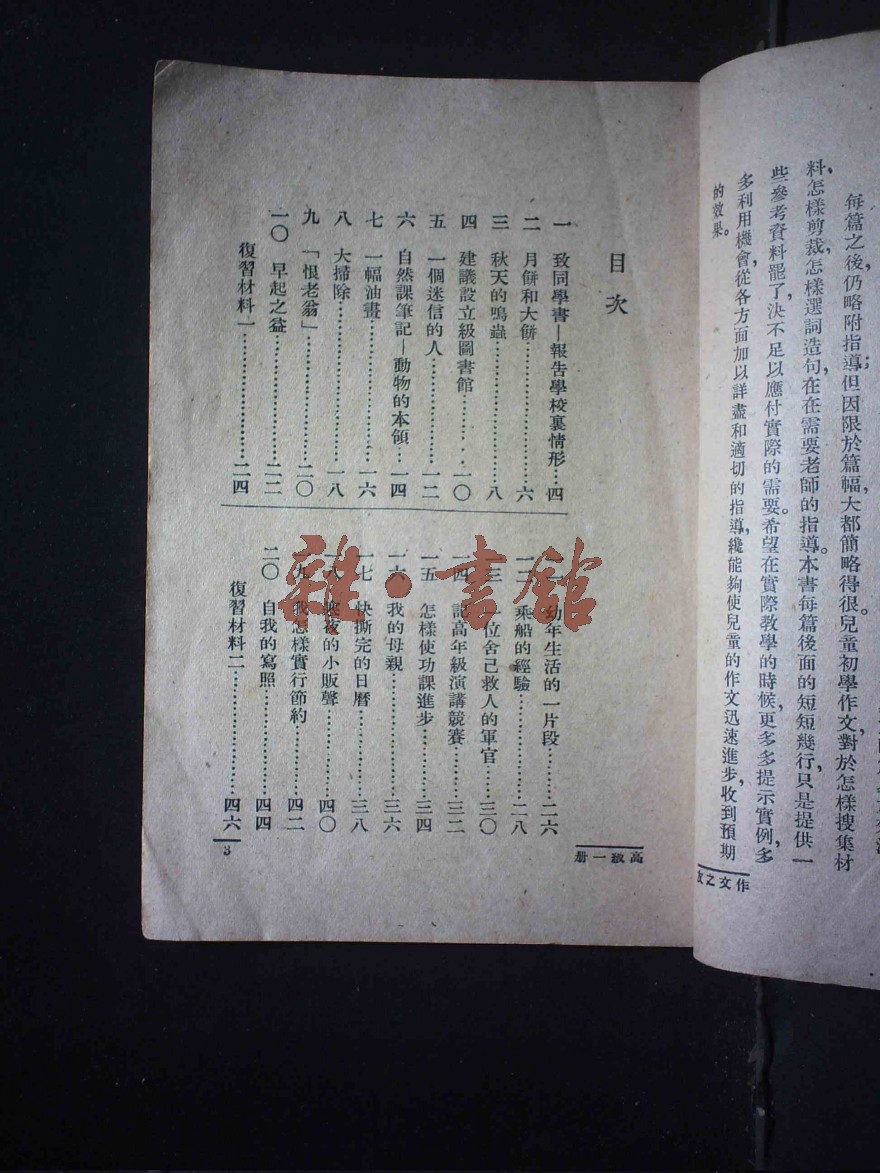 每篇之後仍略附指導;但因限於篇幅,大都簡略得很。兒童初學作文,對於怎樣搜集材
料,怎樣剪裁,怎樣選詞造句,在在需要老師的指導。本書每篇後面的短短幾行,只是提供一
些參考資料罷了,決不足以應付實際的需要。希望在實際教學的時候,更多多提示實例,多
多利用機會,從各方面加以詳盡和適切的指導,纔能夠使兒童的作文迅速進步,收到預期
的效果。
作文之
目次
一 致同學書—報告學校裏情形…四
二 月餅和大餅…六
三 秋天的鳴蟲…八
四 建議設立級圖書館…一〇
五 一個迷信的人…一二
六 自然課筆記—動物的本領…一四
七 一幅油畫…一六
八 大掃除…一八
九 「恨老翁」…二〇
一〇 早起之益…二二
復習材料一…二四
幼年生活的一片段…二六
一二 乘船的經驗…二八
一三 一位舍己救人的軍官…三〇
一四 記高年級演講競賽…三二
一五 怎樣使功課進步…三四
一六 我的母親…三六
一七 快撕完的日曆…三八
一八 寒夜的小販聲…四〇
一九 我怎樣實行節約…四二
二〇 自我的寫照…四四
復習材料二…四六
高級一册
3
雜·書館